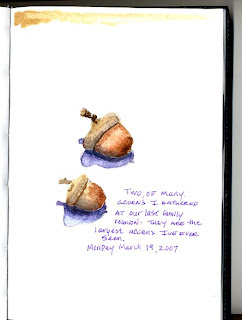 Two of many
acorns I gathered
at our last family
reunion. They are the
largest acorns I've ever
seen.
Monday March 19, 2007